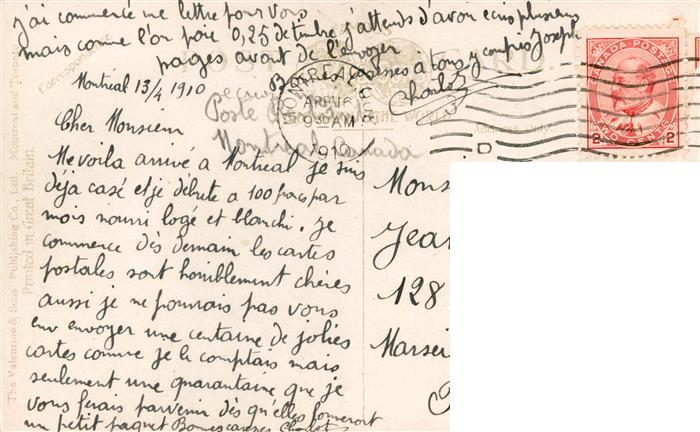 j'ai commencé une lettre pour vous
mais comme l'on paie 0,25 de timbre j'attends d'avoir écrit plusieurs
pages avant de l'envoyer
Bonnes caresses à tous y compris Joseph
Charlot
Correspondence
POST CARD
Montréal 13/4 1910
Poste
Montréal Canada
MONTREAL
APR 16
930 AM
1910
CANADA POSTAGE
2 TWO CENTS 2
Cher Monsieur
Me voila arrivé à Montréal je suis
déja casé et je débute a 100 frcs par
mois nourri logé et blanchi. Je
commence dès demain les cartes
postales sont horriblement chères
aussi je ne pourrais pas vous
env envoyer une centaine de jolies
cartes comme je le comptais mais
seulement une quarantaine que je
vous ferais parvenir dès qu'elles formeront
un petit paquet Bonnes caresses Charlot
Mons
Jean
128
Marsei
The Valentine & Sons' Publishing Co., Ltd., Montreal and Toronto
Printed in Great Britain.